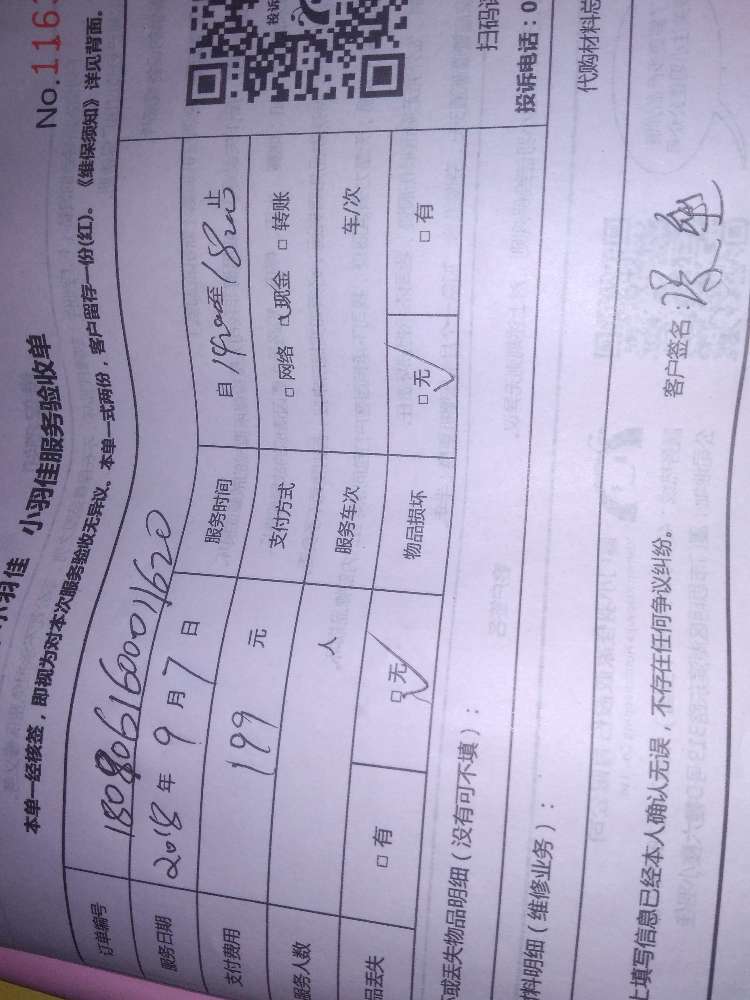 小羽佳 小羽佳服务验收单
No.116
本单一经核签，即视为对本次服务验收无异议。本单一式两份，客户留存一份(红)。《维保须知》详见背面。
订单编号 1808061600011620
服务日期 2018年 9月 7日 服务时间 自 至 止
支付费用 199 元 支付方式 □ 网络 □ 现金 □ 转账
服务人数 人 服务车次 车/次
品丢失 □ 有 □ 无 ✓ 物品损坏 □ 无 ✓ □ 有
或丢失物品明细（没有可不填）：
料明细（维修业务）：
投诉
扫码
投诉电话：0
代购材料总
填写信息已经本人确认无误，不存在任何争议纠纷。
客户签名：